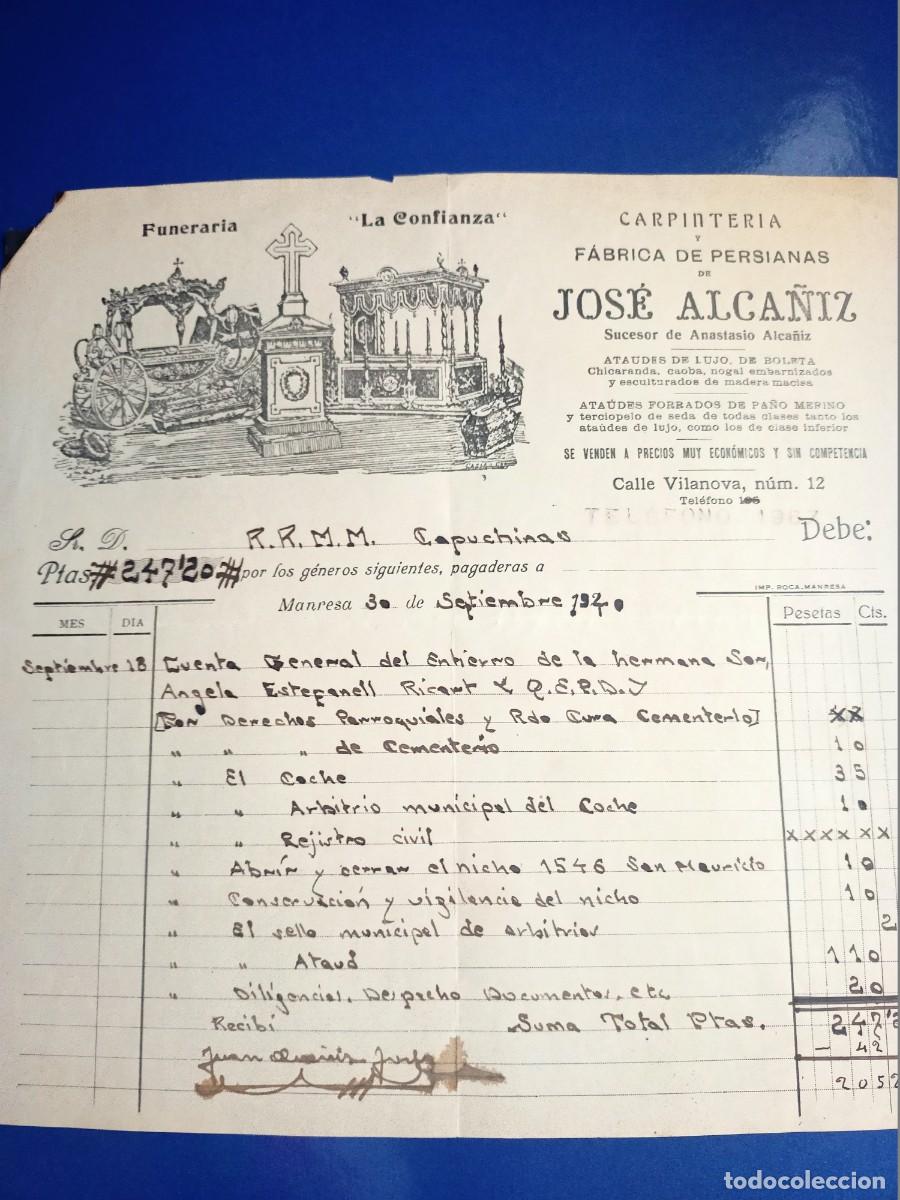 Funeraria "La Confianza"
CARPINTERIA
Y
FÁBRICA DE PERSIANAS
DE
JOSÉ ALCAÑIZ
Sucesor de Anastasio Alcañiz
ATAUDES DE LUJO, DE BOLETA
Chicaranda, caoba, nogal embarnizados
y esculturados de madera macisa
ATAÚDES FORRADOS DE PAÑO MERINO
y terciopelo de seda de todas clases tanto los
ataúdes de lujo, como los de clase inferior
SE VENDEN A PRECIOS MUY ECONÓMICOS Y SIN COMPETENCIA
Calle Vilanova, núm. 12
Teléfono
TELÉFONO
Sr. D. R.R.M.M. Capuchinas Debe:
Ptas # 247'20 # por los géneros siguientes, pagaderas a
IMP. ROCA. MANRESA
Manresa 30 de Septiembre 1940
MES DIA Pesetas Cts.
Septiembre 18 Cuenta General del Entierro de la hermana Sor,
Angela Estepanell Ricart Q.E.P.D.
[Por Derechos Parroquiales y Rdo Cura Cementerio] XX
" " " de Cementerio 10
" El Coche 35
" " Arbitrio municipal del Coche 10
" " Rejistro civil XXXX XX
" Abrir y cerrar el nicho 1546 San Mauricio 10
" Conservación y vigilancia del nicho 10
" El sello municipal de arbitrios 2
" " Ataud 110
" Diligencias, Despacho Documentos, etc 20
Recibí Suma Total Ptas. 247'2
Juan - 42
2052
todocoleccion